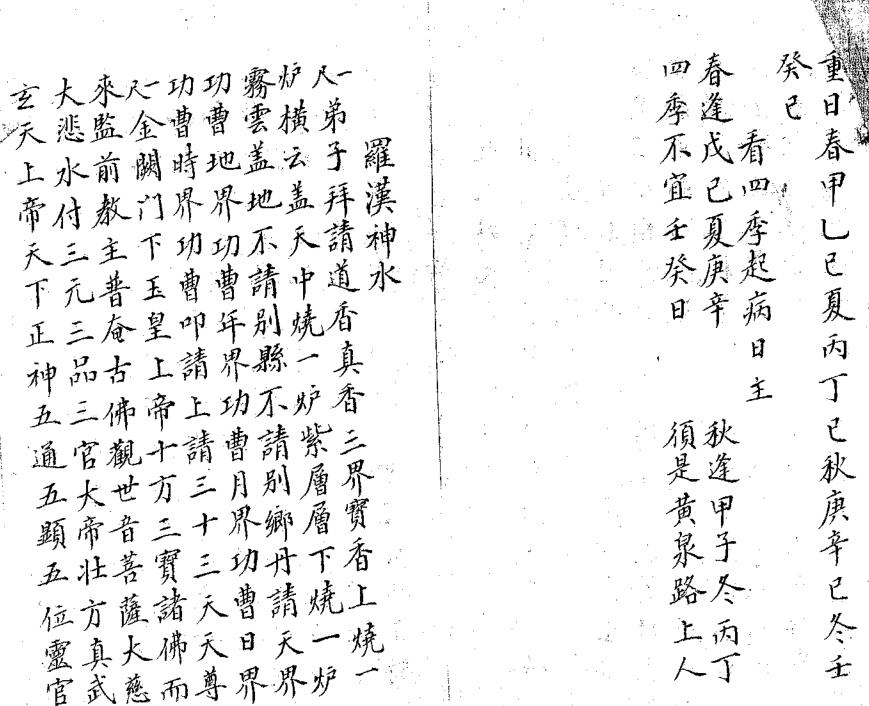 重日春甲乙巳夏丙丁巳秋庚辛巳冬壬
癸巳
看四季起病日主
春逢戊己夏庚辛 秋逢甲子冬丙丁
四季不宜壬癸日 須是黄泉路上人
羅漢神水
一弟子拜請道香真香三界寳香上燒一
炉橫云盖天中燒一炉紫層層下燒一炉
霧雲盖地不請别縣不請别鄉丹請天界
功曹地界功曹年界功曹月界功曹日界
功曹時界功曹叩請上請三十三天天尊
一金闕门下玉皇上帝十方三寳諸佛而
來監前教主普奄古佛觀世音菩薩大慈
大悲水付三元三品三官大帝壮方真武
玄天上帝天下正神五通五顕五位靈官